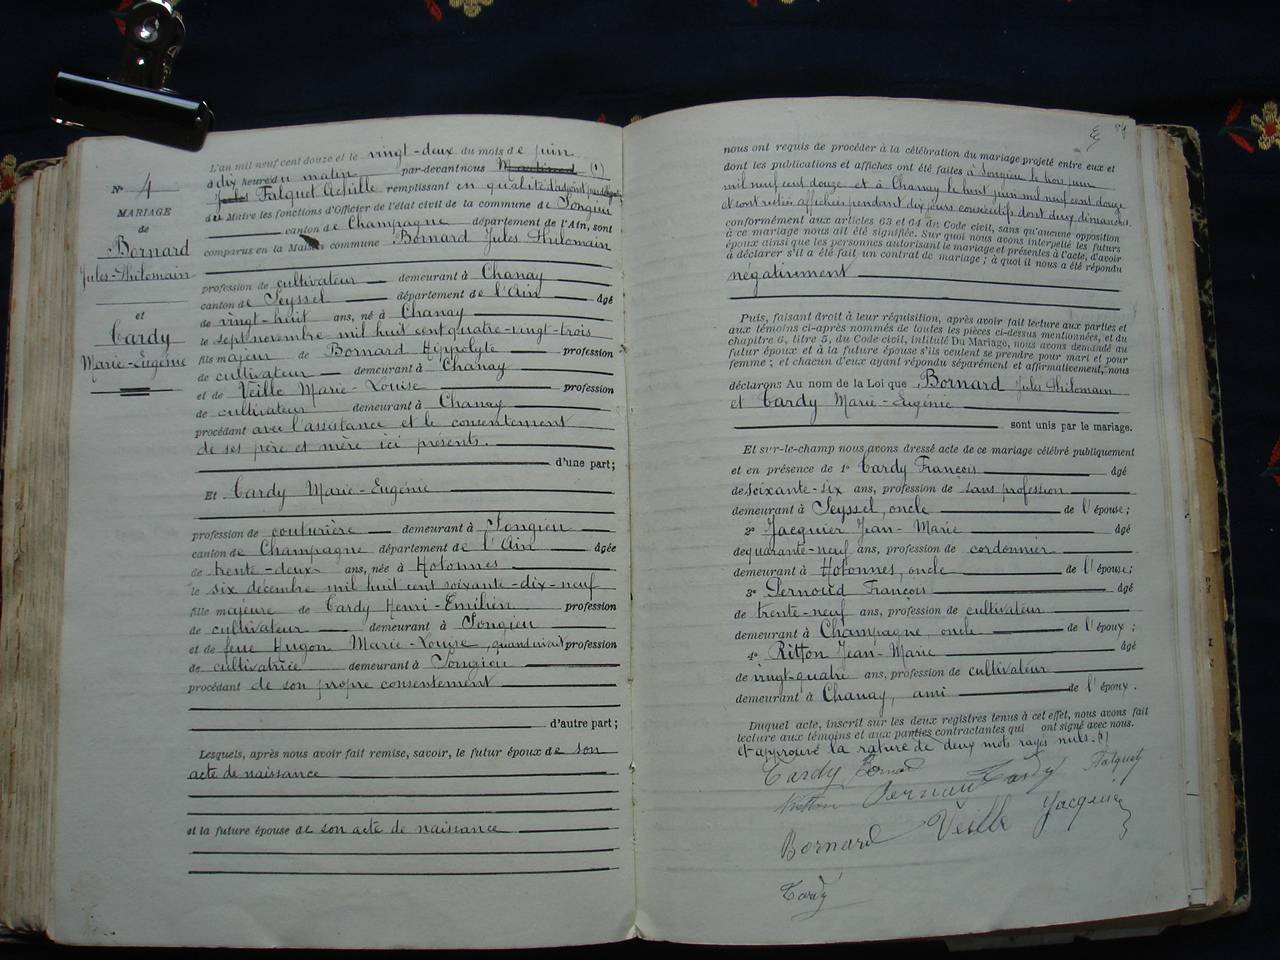 N° 4
MARIAGE
de
Bornard
Jules-Philomain
et
Tardy
Marie-Eugénie
L'an mil neuf cent douze et le vingt-deux du mois de juin
à dix heures du matin par-devant nous (1)
Falquet Achille remplissant en qualité d'adjoint
du Maire les fonctions d'Officier de l'état civil de la commune de Songieu
canton de Champagne département de l'Ain, sont
comparus en la Maison commune Bornard Jules Philomain
profession de cultivateur demeurant à Chanay
canton de Seyssel département de l'Ain âgé
de vingt-huit ans, né à Chanay
le sept novembre mil huit cent quatre-vingt-trois
fils majeur de Bornard Hippolyte profession
de cultivateur demeurant à Chanay
et de Veille Marie-Louise profession
de cultivateur demeurant à Chanay
procédant avec l'assistance et le consentement
de ses père et mère ici présents.
d'une part;
Et Tardy Marie-Eugénie
profession de couturière demeurant à Songieu
canton de Champagne département de l'Ain âgée
de trente-deux ans, née à Hotonnes
le six décembre mil huit cent soixante-dix-neuf
fille majeure de Tardy Henri-Emilien profession
de cultivateur demeurant à Songieu
et de feue Hugon Marie-Louise, quand vivait profession
de cultivatrice demeurant à Songieu
procédant de son propre consentement
d'autre part;
Lesquels, après nous avoir fait remise, savoir, le futur époux de son
acte de naissance
et la future épouse de son acte de naissance
nous ont requis de procéder à la célébration du mariage projeté entre eux et
dont les publications et affiches ont été faites à Songieu le trois juin
mil neuf cent douze et à Chanay le huit juin mil neuf cent douze
et sont restées affichées pendant dix jours consécutifs dont deux dimanches
conformément aux articles 63 et 64 du Code civil, sans qu'aucune opposition
à ce mariage nous ait été signifiée. Sur quoi nous avons interpellé les futurs
époux ainsi que les personnes autorisant le mariage et présentes à l'acte, d'avoir
à déclarer s'il a été fait un contrat de mariage; à quoi il nous a été répondu
négativement
Puis, faisant droit à leur réquisition, après avoir fait lecture aux parties et
aux témoins ci-après nommés de toutes les pièces ci-dessus mentionnées, et du
chapitre 6, titre 5, du Code civil, intitulé Du Mariage, nous avons demandé au
futur époux et à la future épouse s'ils veulent se prendre pour mari et pour
femme; et chacun d'eux ayant répondu séparément et affirmativement, nous
déclarons Au nom de la Loi que Bornard Jules Philomain
et Tardy Marie-Eugénie
sont unis par le mariage.
Et sur-le-champ nous avons dressé acte de ce mariage célébré publiquement
et en présence de 1° Tardy François âgé
de soixante-six ans, profession de sans profession
demeurant à Seyssel, oncle de l'épouse;
2° Jacquier Jean-Marie âgé
de quarante-neuf ans, profession de cordonnier
demeurant à Hotonnes, oncle de l'épouse;
3° Pernoud François âgé
de trente-neuf ans, profession de cultivateur
demeurant à Champagne, oncle de l'époux;
4° Ritton Jean-Marie âgé
de vingt-quatre ans, profession de cultivateur
demeurant à Chanay, ami de l'époux.
Duquel acte, inscrit sur les deux registres tenus à cet effet, nous avons fait
lecture aux témoins et aux parties contractantes qui ont signé avec nous.
et approuvé la rature de deux mots rayés nuls. (1)
Tardy Bornard Tardy Falquet
Ritton Pernoud
Bornard Veille Jacquier
Tardy